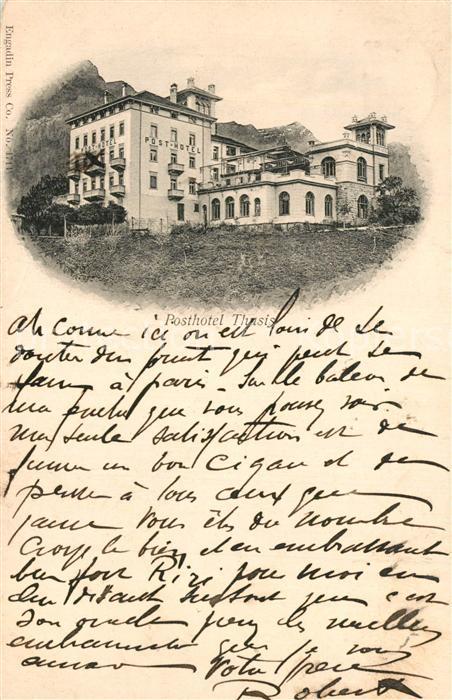 Engadin Press Co. No.
POST-HOTEL
Posthotel Thusis
Ah comme ici on est loin de se
douter du bruit qui peut se
faire à paris. Sur le balcon de
ma que vous pouvez voir
ma seule satisfaction est de
fumer un bon cigare et de
penser à tous ceux que
j'aime vous êtes du nombre
croyez le bien et en embrassant
bien fort Riri pour moi en
lui disant surtout que c'est
son oncle les meilleurs
embrassements que je vous
Votre frère
Robert